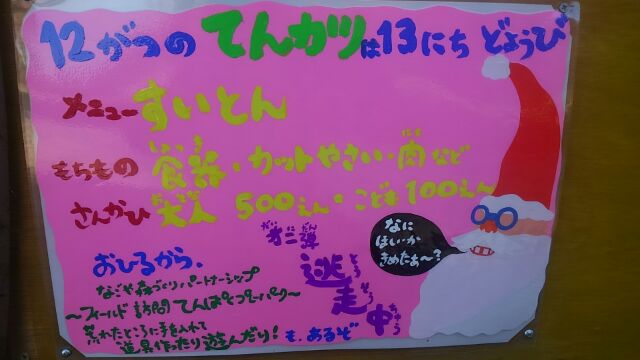 12がつの てんカツは13にち どようび
メニュー すいとん
もちもの 食器・カットやさい・肉など
さんかひ 大人 500えん・こども 100えん
なに
ほしいか
きめたぁ〜?
おひるから、
なごや森づくりパートナーシップ
〜フィールド訪問 てんぱくプレーパーク〜
荒れたところに手を入れて
道具作ったり 遊んだり! も、あるぞ
第二弾
逃走中